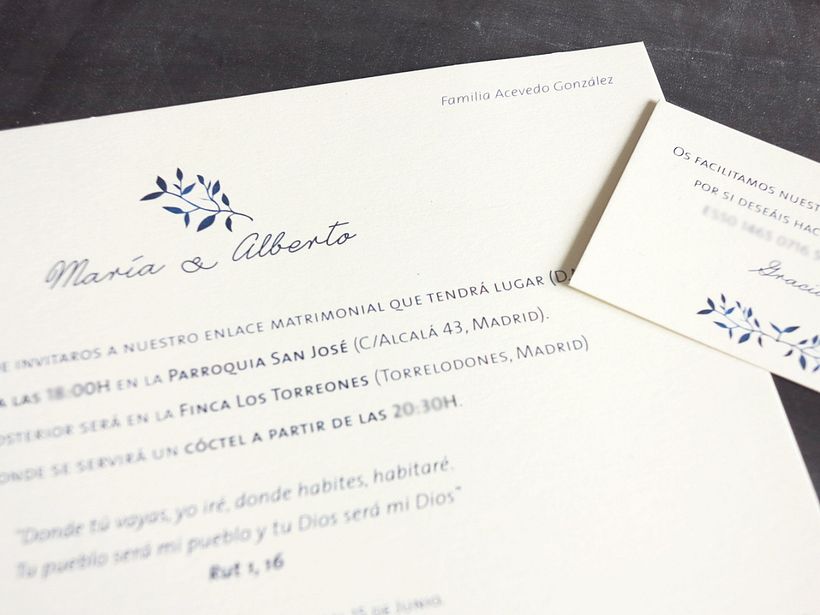 Familia Acevedo González
María & Alberto
DE INVITAROS A NUESTRO ENLACE MATRIMONIAL QUE TENDRÁ LUGAR (D.
A LAS 18:00H EN LA PARROQUIA SAN JOSÉ (C/ALCALÁ 43, MADRID).
OSTERIOR SERÁ EN LA FINCA LOS TORREONES (TORRELODONES, MADRID)
ONDE SE SERVIRÁ UN CÓCTEL A PARTIR DE LAS 20:30H.
"Donde tú vayas, yo iré, donde habites, habitaré.
Tu pueblo será mi pueblo y tu Dios será mi Dios"
Rut 1, 16
15 DE JUNIO
OS FACILITAMOS NUEST
POR SI DESEÁIS HAC
ES50 1465 0716
Graci